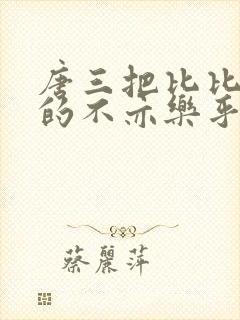 唐三把比比
的不亦樂乎
蔡麗萍